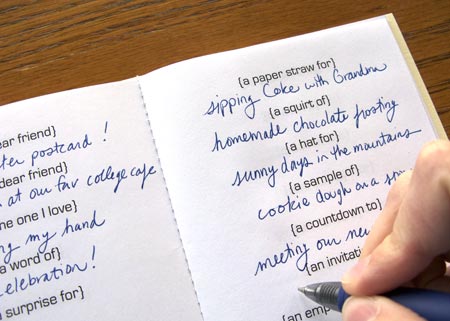 ear friend}
ter postcard!
dear friend}
at our fav college cafe
he one I love}
ng my hand
a word of}
celebration!
a surprise for}
{a paper straw for}
sipping Coke with Grandma
{a squirt of}
homemade chocolate frosting
{a hat for}
sunny days in the mountains
{a sample of}
cookie dough on a spo
{a countdown to}
meeting our new
{an invita
{an emp